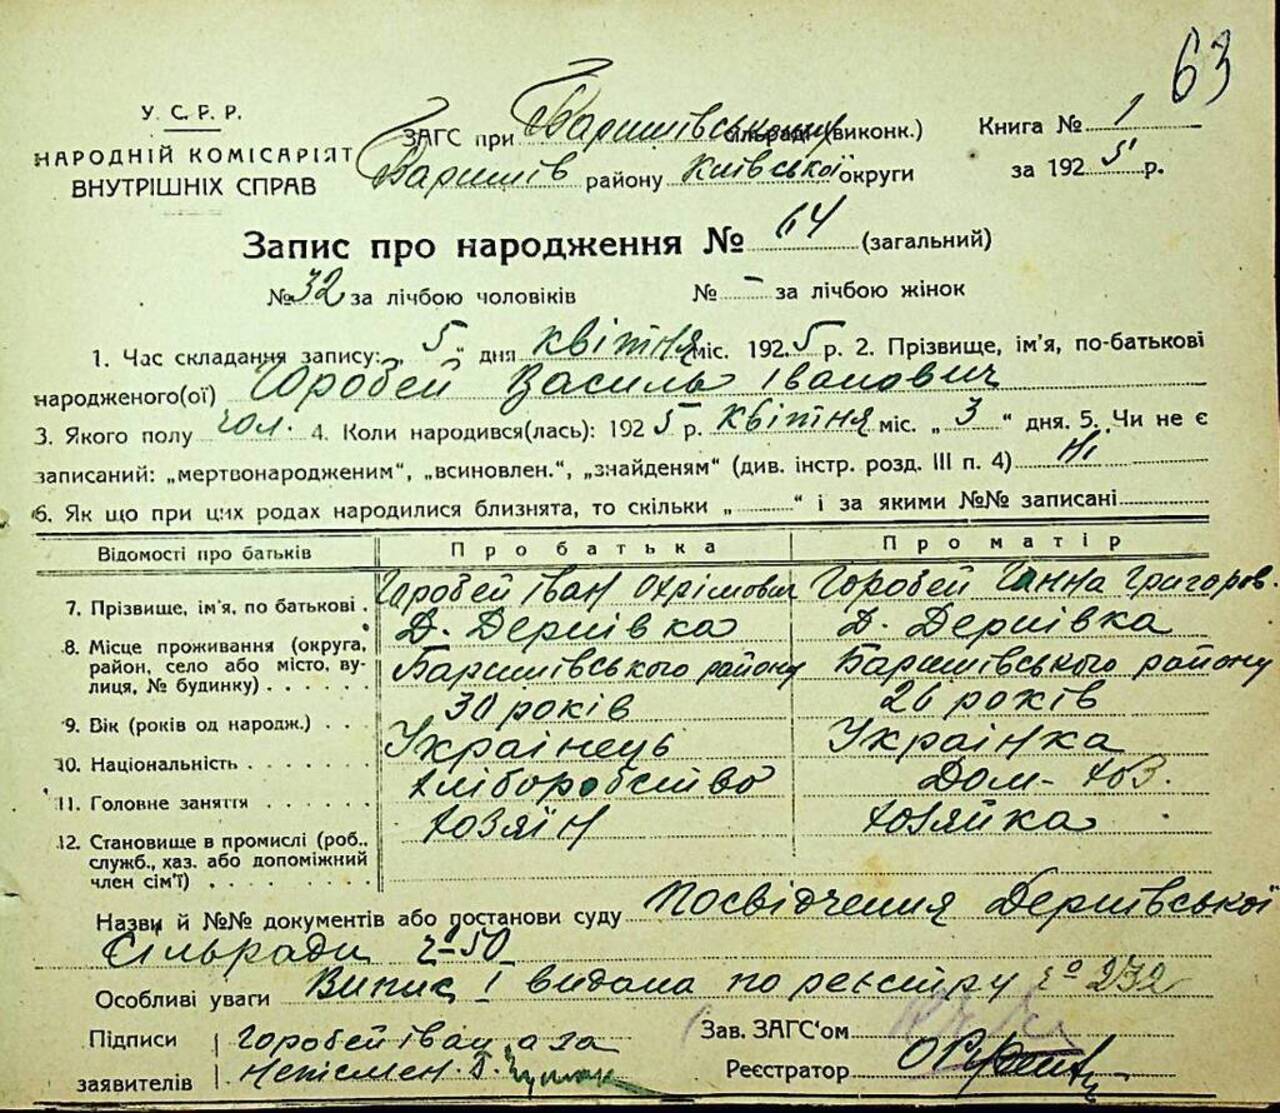 63
У. С. Р. Р.
НАРОДНІЙ КОМІСАРІЯТ
ВНУТРІШНІХ СПРАВ
ЗАГС при Баришівському (виконк.)
Баришів району Київської округи
Книга № 1
за 1925 р.
Запис про народження № 64 (загальний)
№ 32 за лічбою чоловіків № - за лічбою жінок
1. Час складання запису: „ 5 " дня квітня міс. 1925 р. 2. Прізвище, ім'я, по-батькові
народженого(ої) Горобей Василь Іванович
3. Якого полу чол. 4. Коли народився(лась): 1925 р. квітня міс. „ 3 " дня. 5. Чи не є
записаний: „мертвонародженим", „всиновлен.", „знайденям" (див. інстр. розд. III п. 4) Ні
6. Як що при цих родах народилися близнята, то скільки „ " і за якими №№ записані
Відомості про батьків Про батька Про матір
7. Прізвище, ім'я, по батькові . Горобей Іван Охрімович Горобей Ганна Григоров.
8. Місце проживання (округа, Д. Дернівка Д. Дернівка
район, село або місто, ву- Баришівського району Баришівського району
лиця, № будинку) . . . . . .
9. Вік (років од народж.) . . . 30 років 26 років
10. Національність . . . . . . . Українець Українка
11. Головне заняття . . . . . . хліборобство Дом-хоз.
12. Становище в промислі (роб., хозяїн хозяйка
служб., хаз. або допоміжний
член сім'ї) . . . . . . . .
Назви й №№ документів або постанови суду Посвідчення Дернівської
Сільради ч-50
Особливі уваги Випис І видана по реєстру № 232
Підписи Горобей Іван а за
заявителів неписмен.
Зав. ЗАГС'ом
Реєстратор